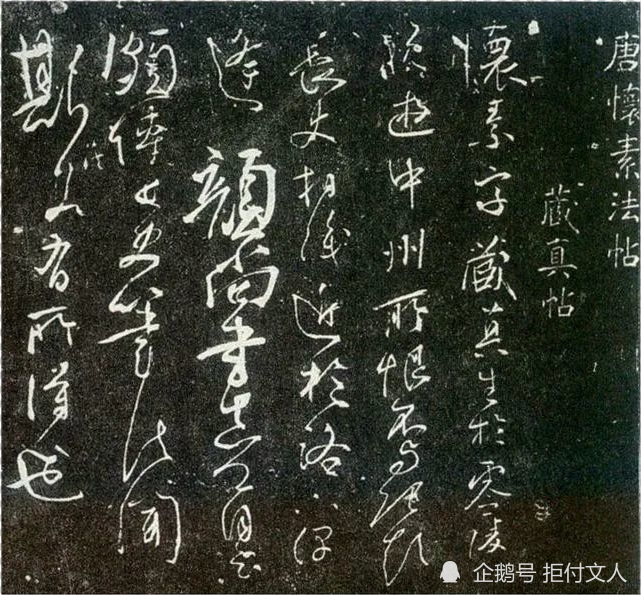 唐懷素法帖
藏真帖
懷素字藏真生於零陵
晚遊中州所恨不與張顛
長史相識近於洛下偶
逢顏尚書真卿自云
頗傳長史筆法聞
斯法若有所得也
企鹅号 拒付文人